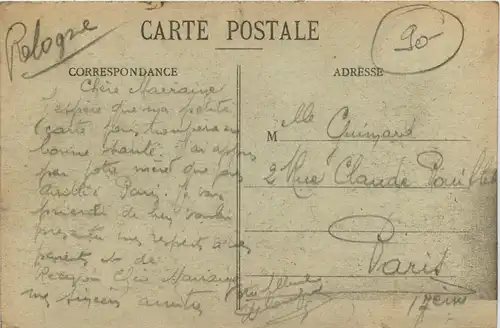 Pologne
90-
CARTE POSTALE
CORRESPONDANCE
ADRESSE
Chère Marraine
J'espère que ma petite
carte vous trouvera en
bonne santé. J'ai appris
par votre mère que
Paris. Je vous
prierai de bien vouloir
présenter mes respects à vos
parents et de
Chère Marraine
mes sincères amitiés
Melle Guimard
2 Rue Claude
Paris
17eme